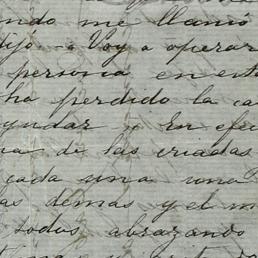 ndo me llamó
dijo - a Voy a operar
persona en est
ha perdido la ca
yudar - En efec
de las criadas
cada una una
as demas y el m
todos abrazando